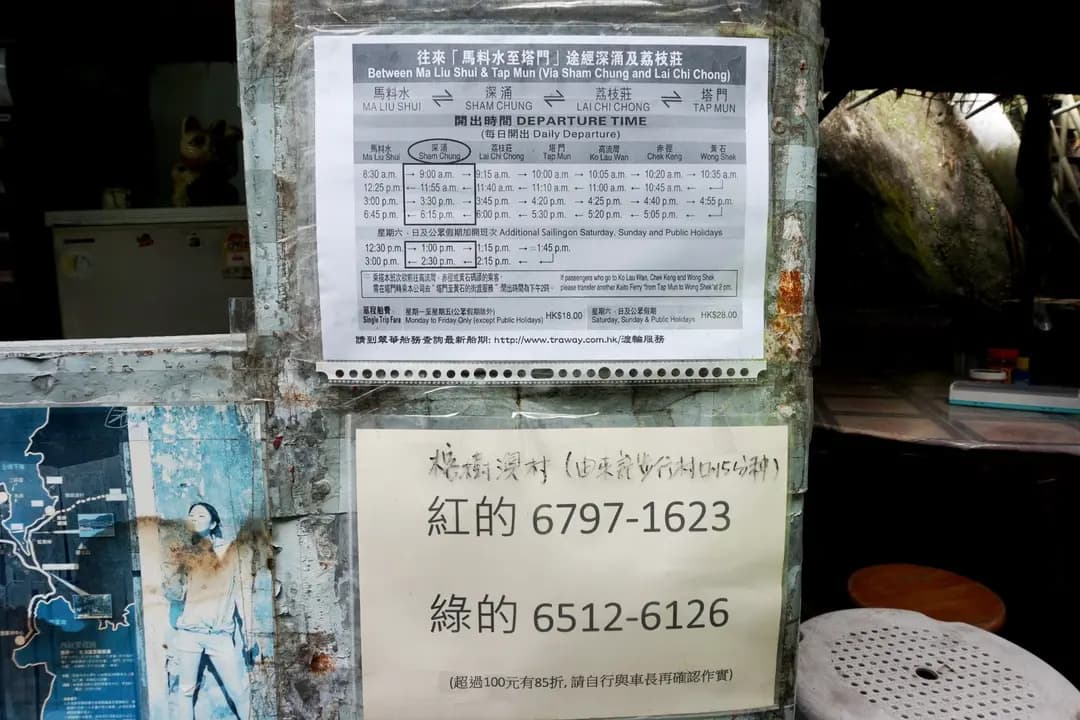 往來「馬料水至塔門」途經深涌及荔枝莊
Between Ma Liu Shui & Tap Mun (Via Sham Chung and Lai Chi Chong)
馬料水 ⇌ 深涌 ⇌ 荔枝莊 ⇌ 塔門
MA LIU SHUI SHAM CHUNG LAI CHI CHONG TAP MUN
開出時間 DEPARTURE TIME
(每日開出 Daily Departure)
馬料水 深涌 荔枝莊 塔門 高流灣 赤徑 黃石
Ma Liu Shui Sham Chung Lai Chi Chong Tap Mun Ko Lau Wan Chek Keng Wong Shek
8:30 a.m. → 9:00 a.m. → 9:15 a.m. → 10:00 a.m. → 10:05 a.m. → 10:20 a.m. → 10:35 a.m.
12:25 p.m. ← 11:55 a.m. ← 11:40 a.m. ← 11:10 a.m. ← 11:00 a.m. ← 10:45 a.m. ←
3:00 p.m. → 3:30 p.m. → 3:45 p.m. → 4:20 p.m. → 4:25 p.m. → 4:40 p.m. → 4:55 p.m.
6:45 p.m. ← 6:15 p.m. ← 6:00 p.m. ← 5:30 p.m. ← 5:20 p.m. ← 5:05 p.m. ←
星期六、日及公眾假期加開班次 Additional Sailing on Saturday, Sunday and Public Holidays
12:30 p.m. → 1:00 p.m. → 1:15 p.m. → 1:45 p.m.
3:00 p.m. ← 2:30 p.m. ← 2:15 p.m. ←
乘搭本班次欲前往高流灣、赤徑或黃石碼頭的乘客， If passengers who go to Ko Lau Wan, Chek Keng and Wong Shek,
需在塔門轉乘本公司由 開出時間為下午2時。 please transfer another Kaito Ferry "from Tap Mun to Wong Shek" at 2 pm.
單程船費 星期一至星期五(公眾假期除外) HK$18.00 星期六、日及公眾假期 HK$28.00
Single Trip Fare Monday to Friday Only (except Public Holidays) Saturday, Sunday & Public Holidays
請到翠華船務查詢最新船期: http://www.traway.com.hk/渡輪服務
榕樹澳村 (由來 步行村口15分種)
紅的 6797-1623
綠的 6512-6126
(超過100元有85折, 請自行與車長再確認作實)